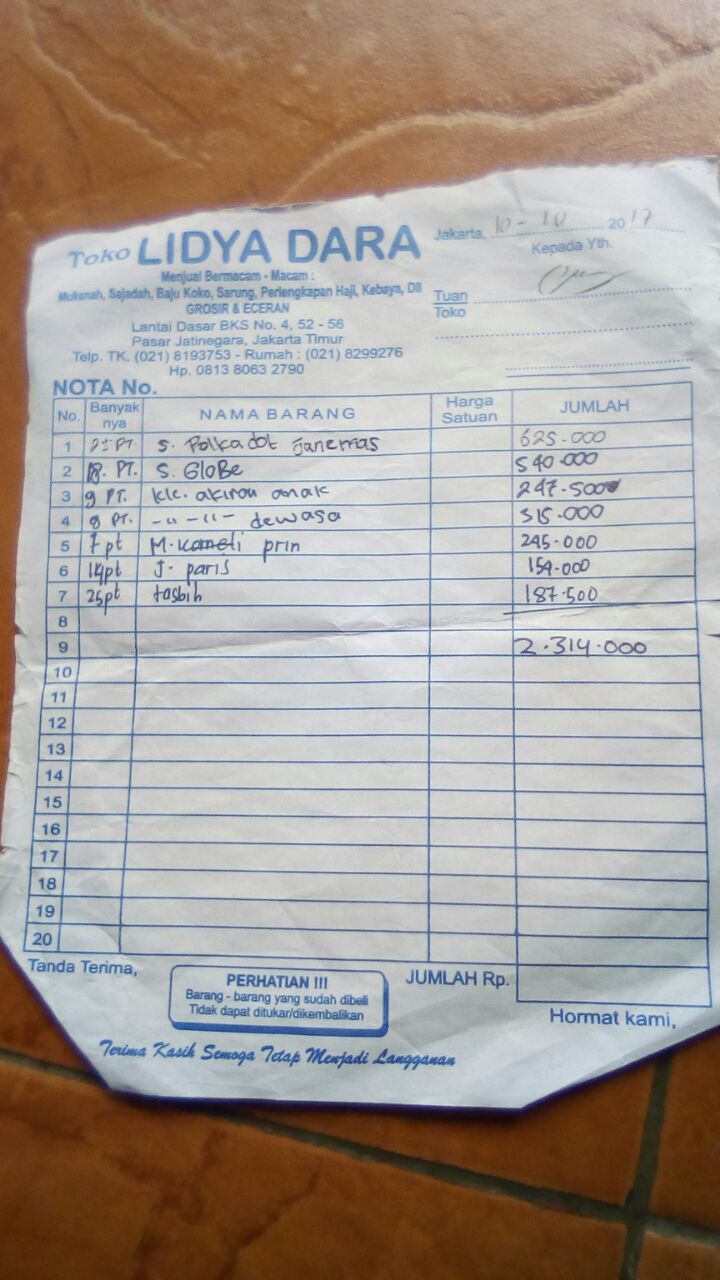 Toko LIDYA DARA
Menjual Bermacam - Macam :
Mukenah, Sajadah, Baju Koko, Sarung, Perlengkapan Haji, Kebaya, Dll
GROSIR & ECERAN
Lantai Dasar BKS No. 4, 52 - 56
Pasar Jatinegara, Jakarta Timur
Telp. TK. (021) 8193753 - Rumah : (021) 8299276
Hp. 0813 8063 2790
Jakarta, 10 - 10 2017
Kepada Yth.
Tuan
Toko
NOTA No.
No. Banyak nya NAMA BARANG Harga Satuan JUMLAH
1 25 PT. S. Polkadot 625.000
2 18. PT. S. GloBe 540.000
3 9 PT. klc. anak 247.500
4 PT. -"-"- dewasa 315.000
5 7 pt M. prin 245.000
6 14pt J. paris 154.000
7 25pt tasbih 187.500
8
9 2.314.000
10
11
12
13
14
15
16
17
18
19
20
Tanda Terima,
PERHATIAN !!!
Barang - barang yang sudah dibeli
Tidak dapat ditukar/dikembalikan
JUMLAH Rp.
Hormat kami,
Terima Kasih Semoga Tetap Menjadi Langganan